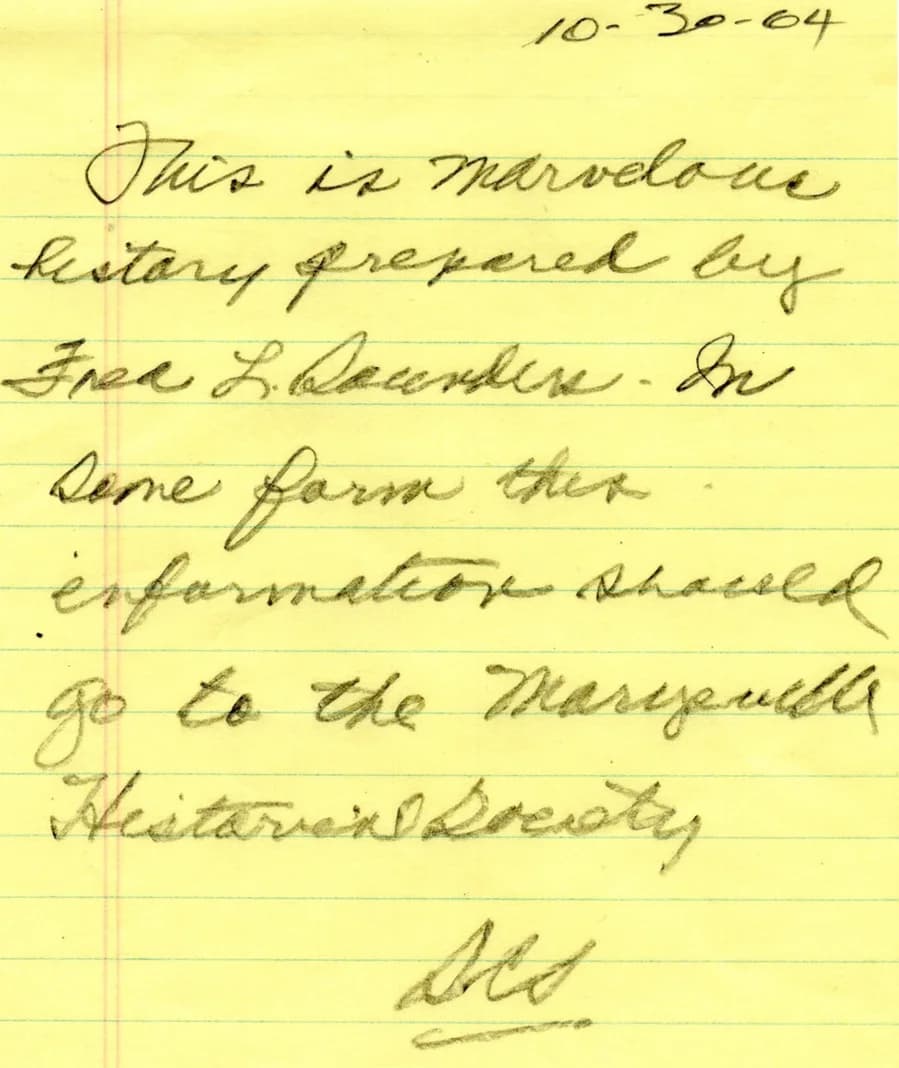 10-30-04
This is marvelous
history prepared by
Fred L. Saunders. In
some form this
information should
go to the Marysville
Historical Society
DCS